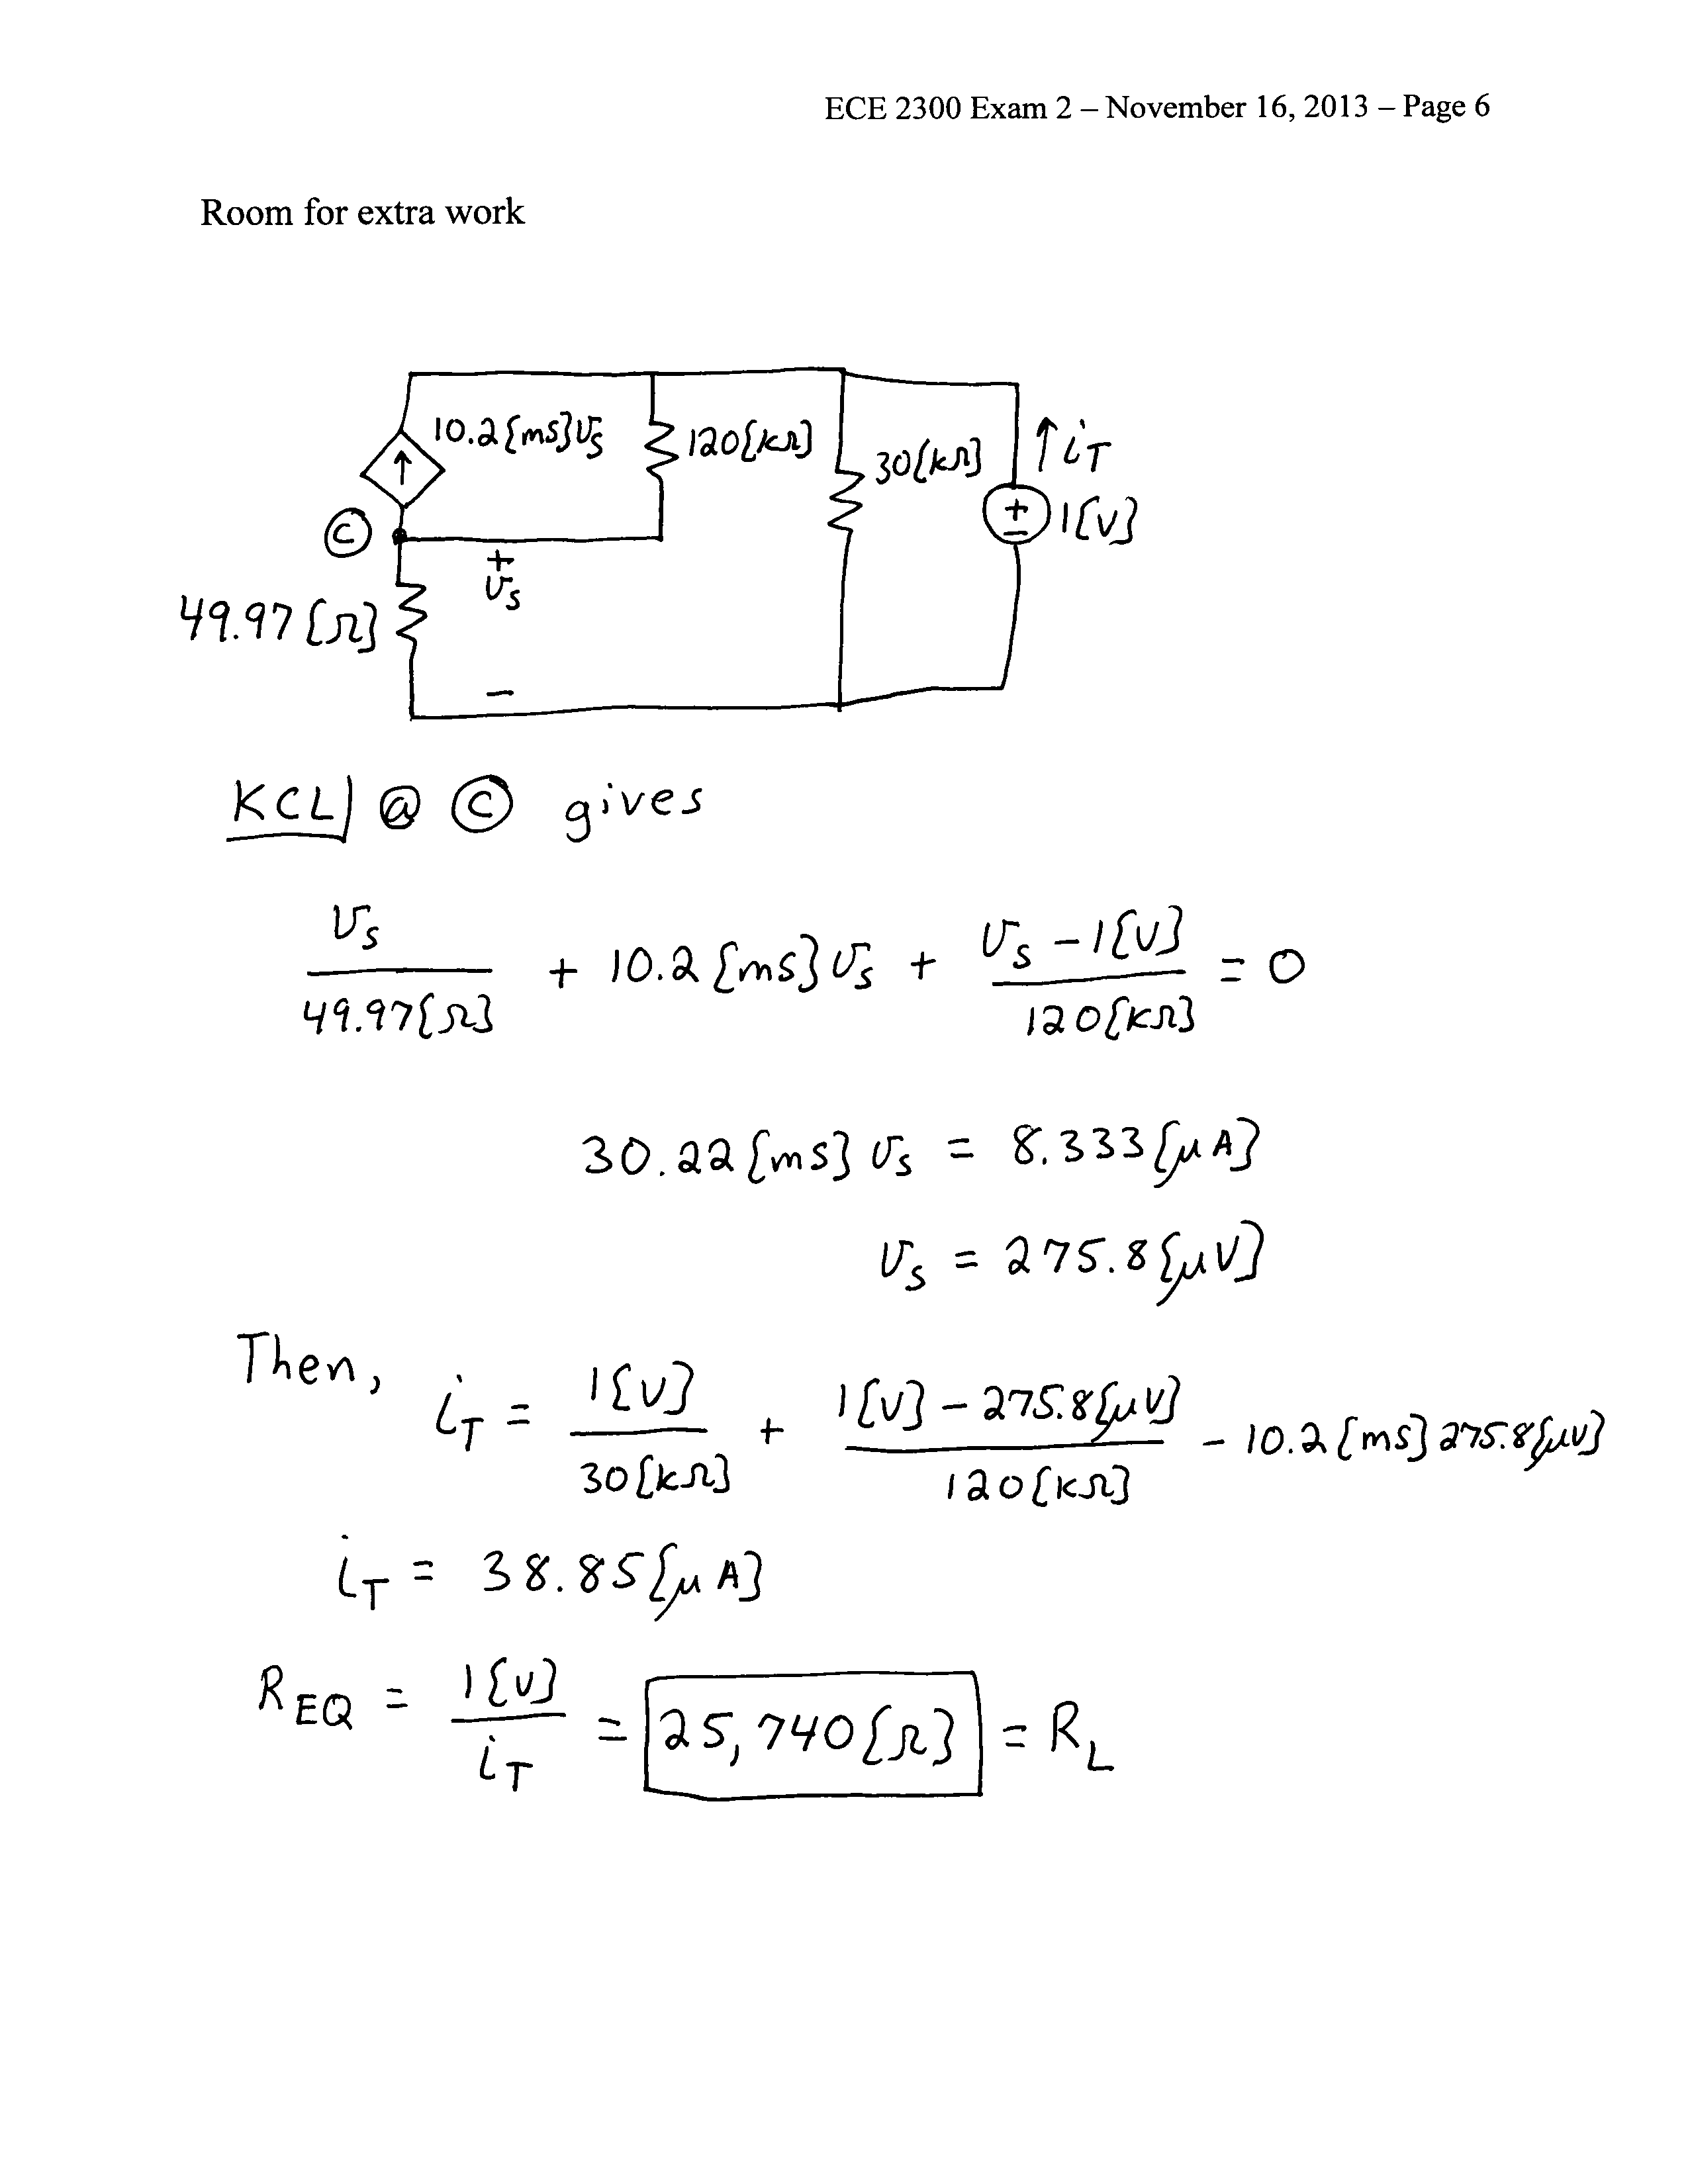 ECE 2300 Exam 2 – November 16, 2013 – Page 6
Room for extra work
10.2{mS}vs
120{kΩ}
30{kΩ}
↑ iT
+
−
1{V}
C
+
vs
−
49.97{Ω}
KCL @ C gives
vs/49.97{Ω} + 10.2{mS}vs + (vs − 1{V})/120{kΩ} = 0
30.22{mS} vs = 8.333{μA}
vs = 275.8{μV}
Then, iT = 1{V}/30{kΩ} + (1{V} − 275.8{μV})/120{kΩ} − 10.2{mS}275.8{μV}
iT = 38.85{μA}
REQ = 1{V}/iT = 25,740{Ω} = RL